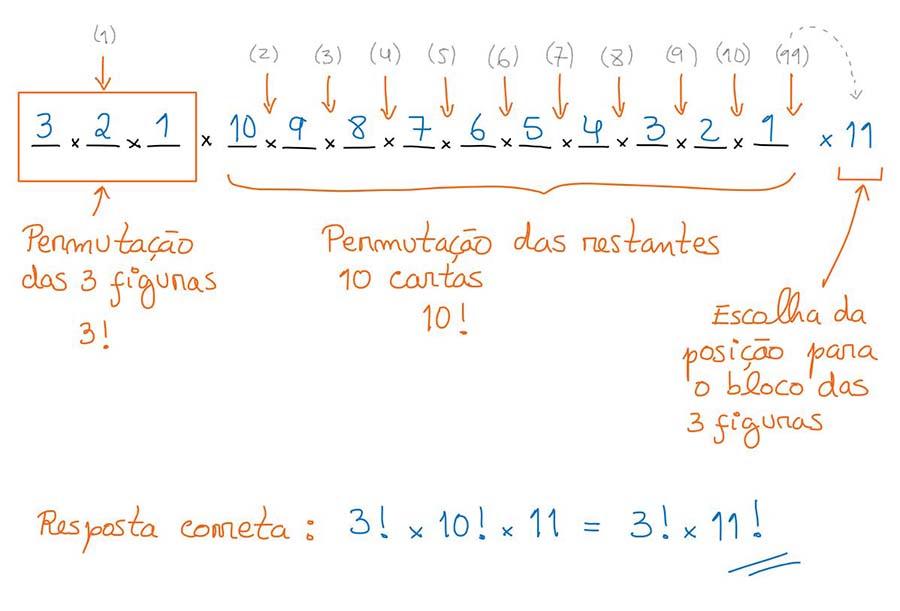 (1) (2) (3) (4) (5) (6) (7) (8) (9) (10) (11)
3 × 2 × 1 × 10 × 9 × 8 × 7 × 6 × 5 × 4 × 3 × 2 × 1 × 11
Permutação
das 3 figuras
3!
Permutação das restantes
10 cartas
10!
Escolha da
posição para
o bloco das
3 figuras
Resposta correta: 3! × 10! × 11 = 3! × 11!